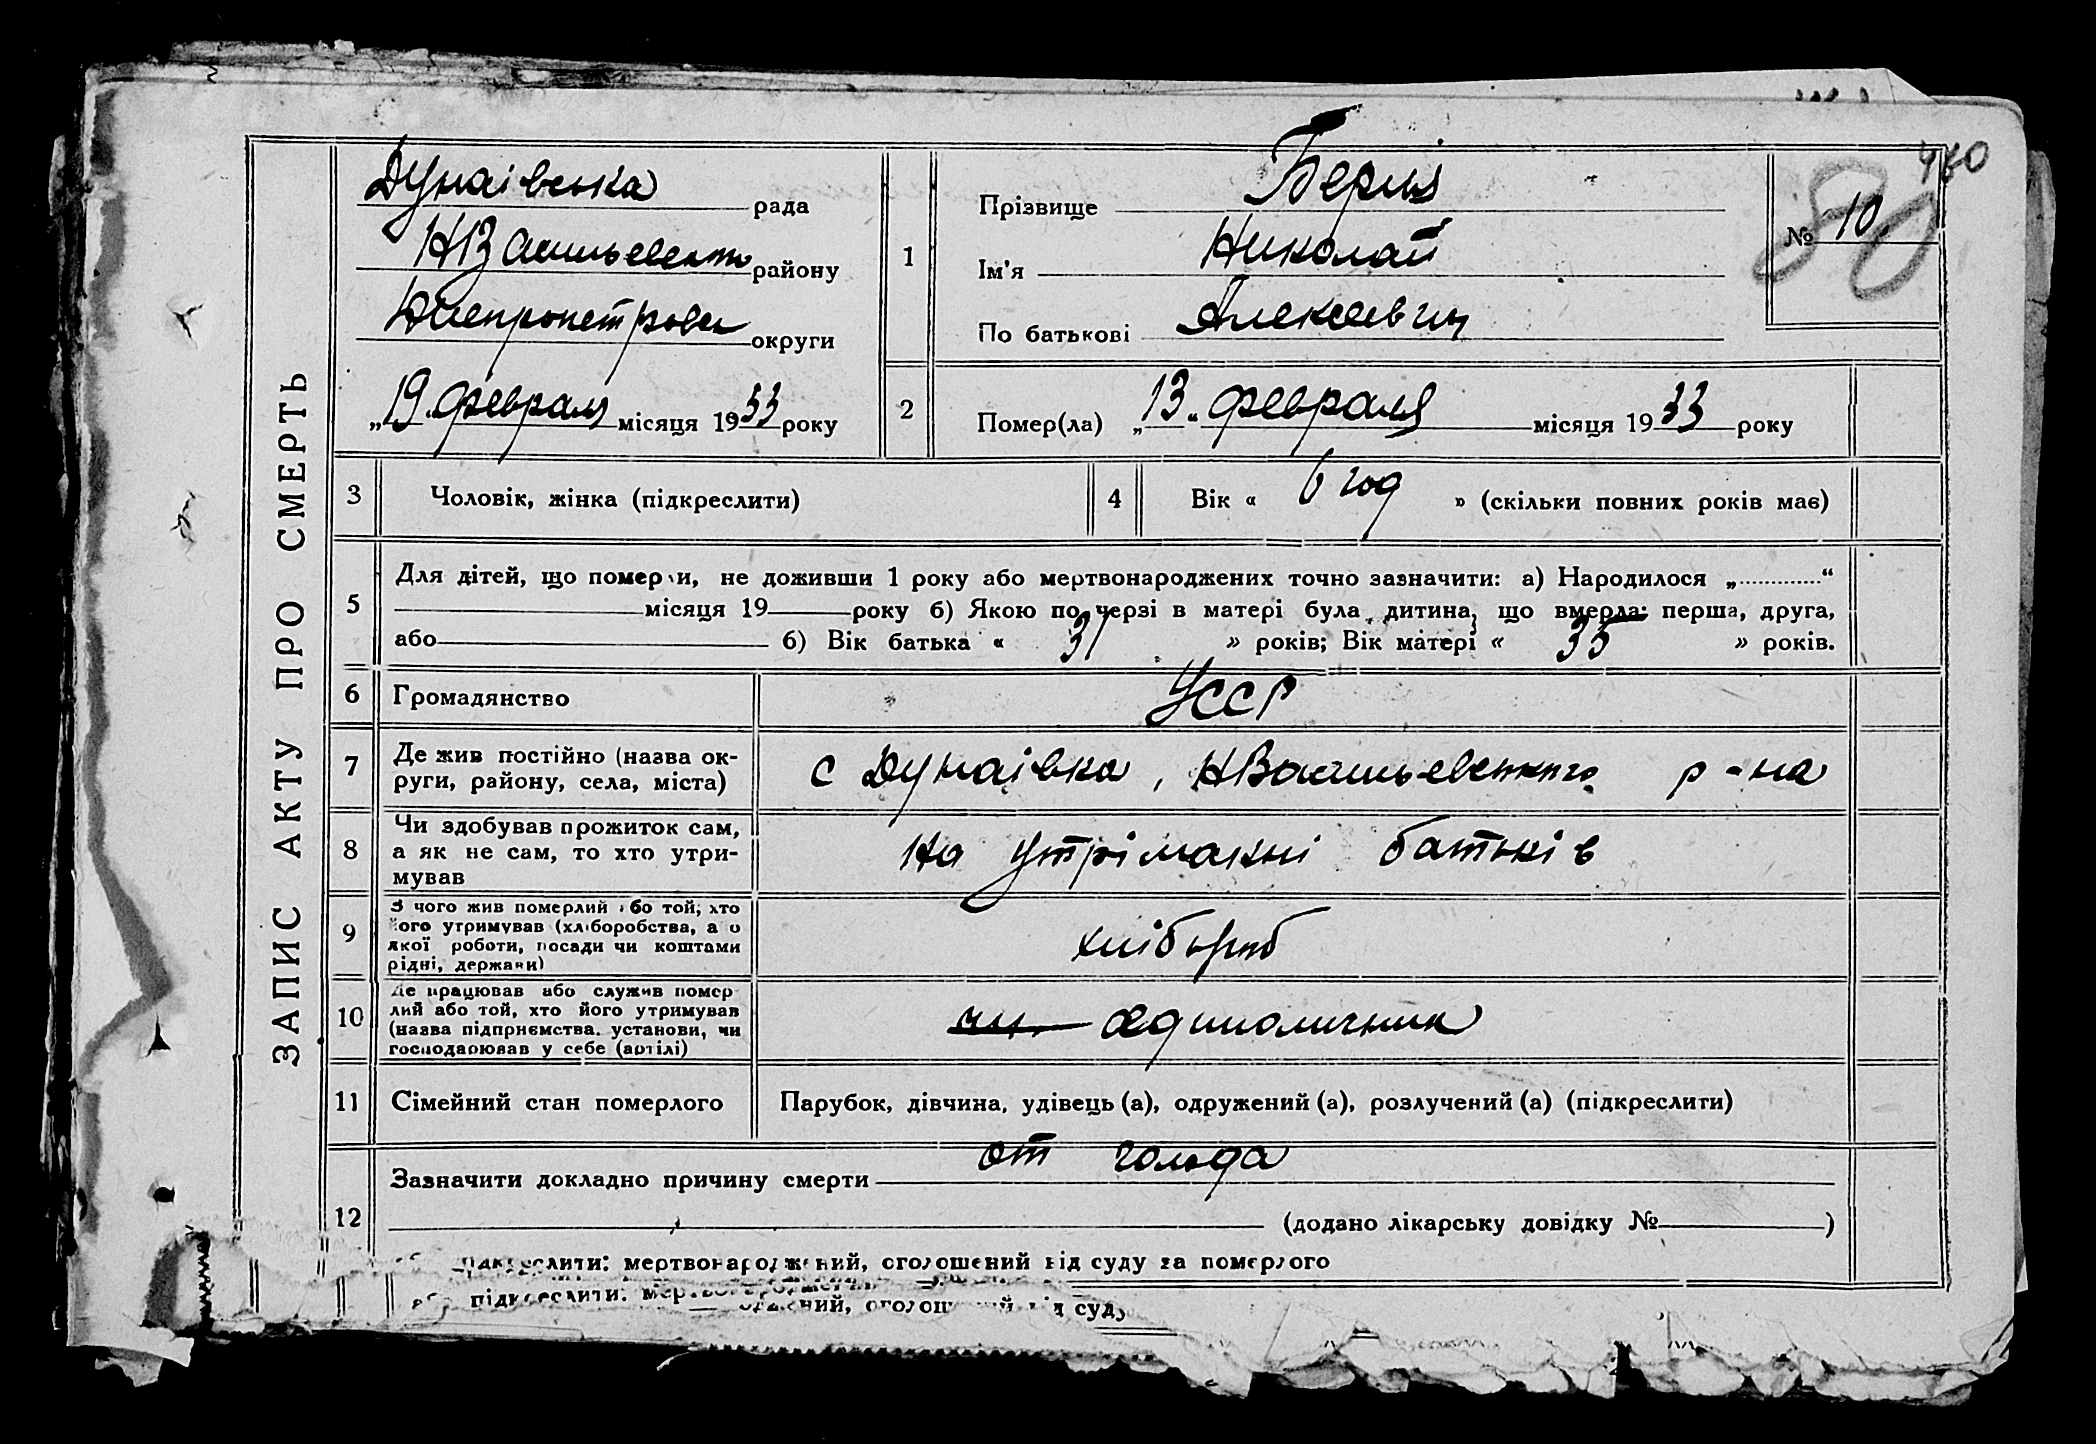 460
80
ЗАПИС АКТУ ПРО СМЕРТЬ
Дунаівська рада
НВасильевського району
Днепропетровск округи
„19" февраля місяця 1933 року
1
Прізвище
Ім'я Николай
По батькові Алексеевич
№ 10
2
Помер(ла) „13" февраля місяця 1933 року
3
Чоловік, жінка (підкреслити)
4
Вік « 6 год » (скільки повних років має)
5
Для дітей, що померли, не доживши 1 року або мертвонароджених точно зазначити: а) Народилося „............“
місяця 19 року б) Якою по черзі в матері була дитина, що вмерла: перша, друга,
або б) Вік батька « 31 » років; Вік матері « 35 » років.
6
Громадянство
УССР
7
Де жив постійно (назва ок-
руги, району, села, міста)
с Дунаівка, НВасильевського р-на
8
Чи здобував прожиток сам,
а як не сам, то хто утри-
мував
На утрімакні батьків
9
З чого жив померлий або той, хто
його утримував (хліборобства, а о
якої роботи, посади чи коштами
рідні, держави)
хлібороб
10
Де працював або служив помер
лий або той, хто його утримував
(назва підприємства, установи, чи
господарював у себе (артілі)
единоличник
11
Сімейний стан померлого
Парубок, дівчина, удівець (а), одружений (а), розлучений (а) (підкреслити)
12
Зазначити докладно причину смерти от голода
(додано лікарську довідку № )
підкреслити: мертвонароджений, оголошений від суду за померлого
підкреслити: мертвонароджений
оголошений від суду